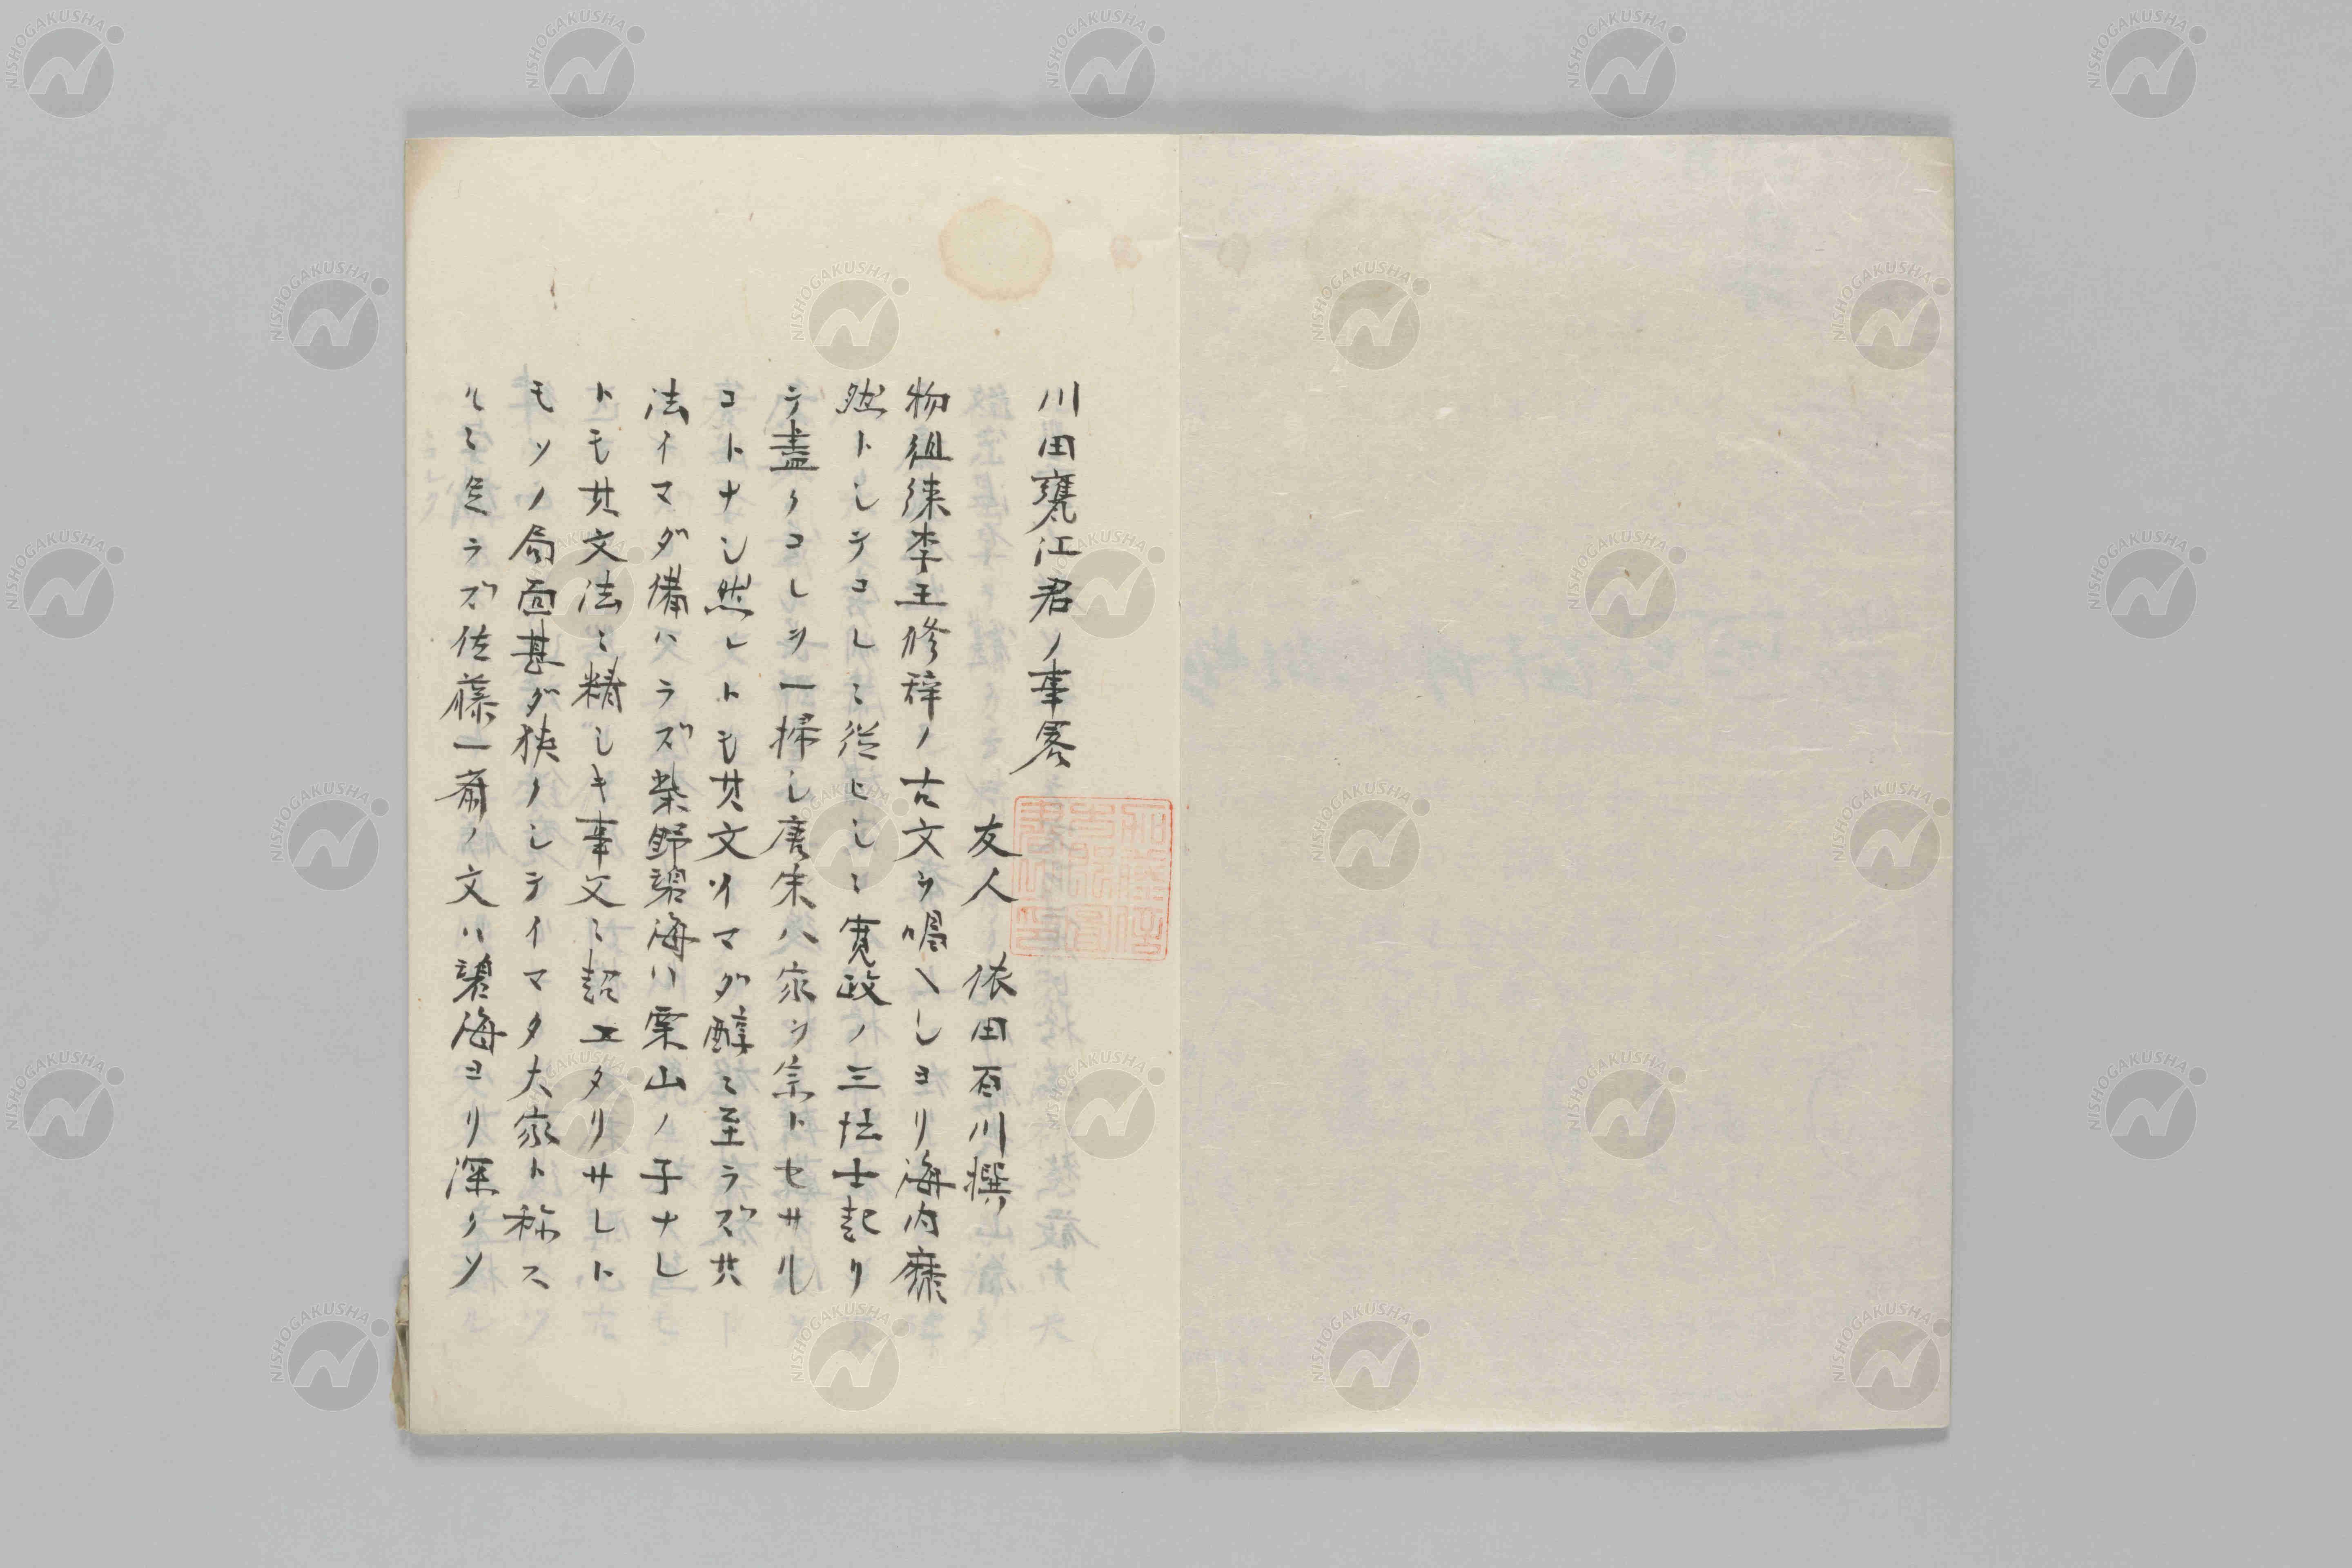 川田甕江君ノ事畧
友人 依田百川撰
物徂徠李王修辞ノ古文ヲ唱ヘシヨリ海内靡
然トシテコレニ従ヒシニ寛政ノ三博士起リ
テ盡クコレヲ一掃シ唐宋八家ヲ宗トセサル
コトナシ然レトモ其文イマダ醇ニ至ラズ其
法イマダ備ハラズ柴野碧海ハ栗山ノ子ナレ
トモ其文法ニ精シキ事父ニ超エタリサレト
モソノ局面甚ダ狭クシテイマタ大家ト称ス
ルニ足ラズ佐藤一斎ノ文ハ碧海ヨリ深クソ
NISHOGAKUSHA